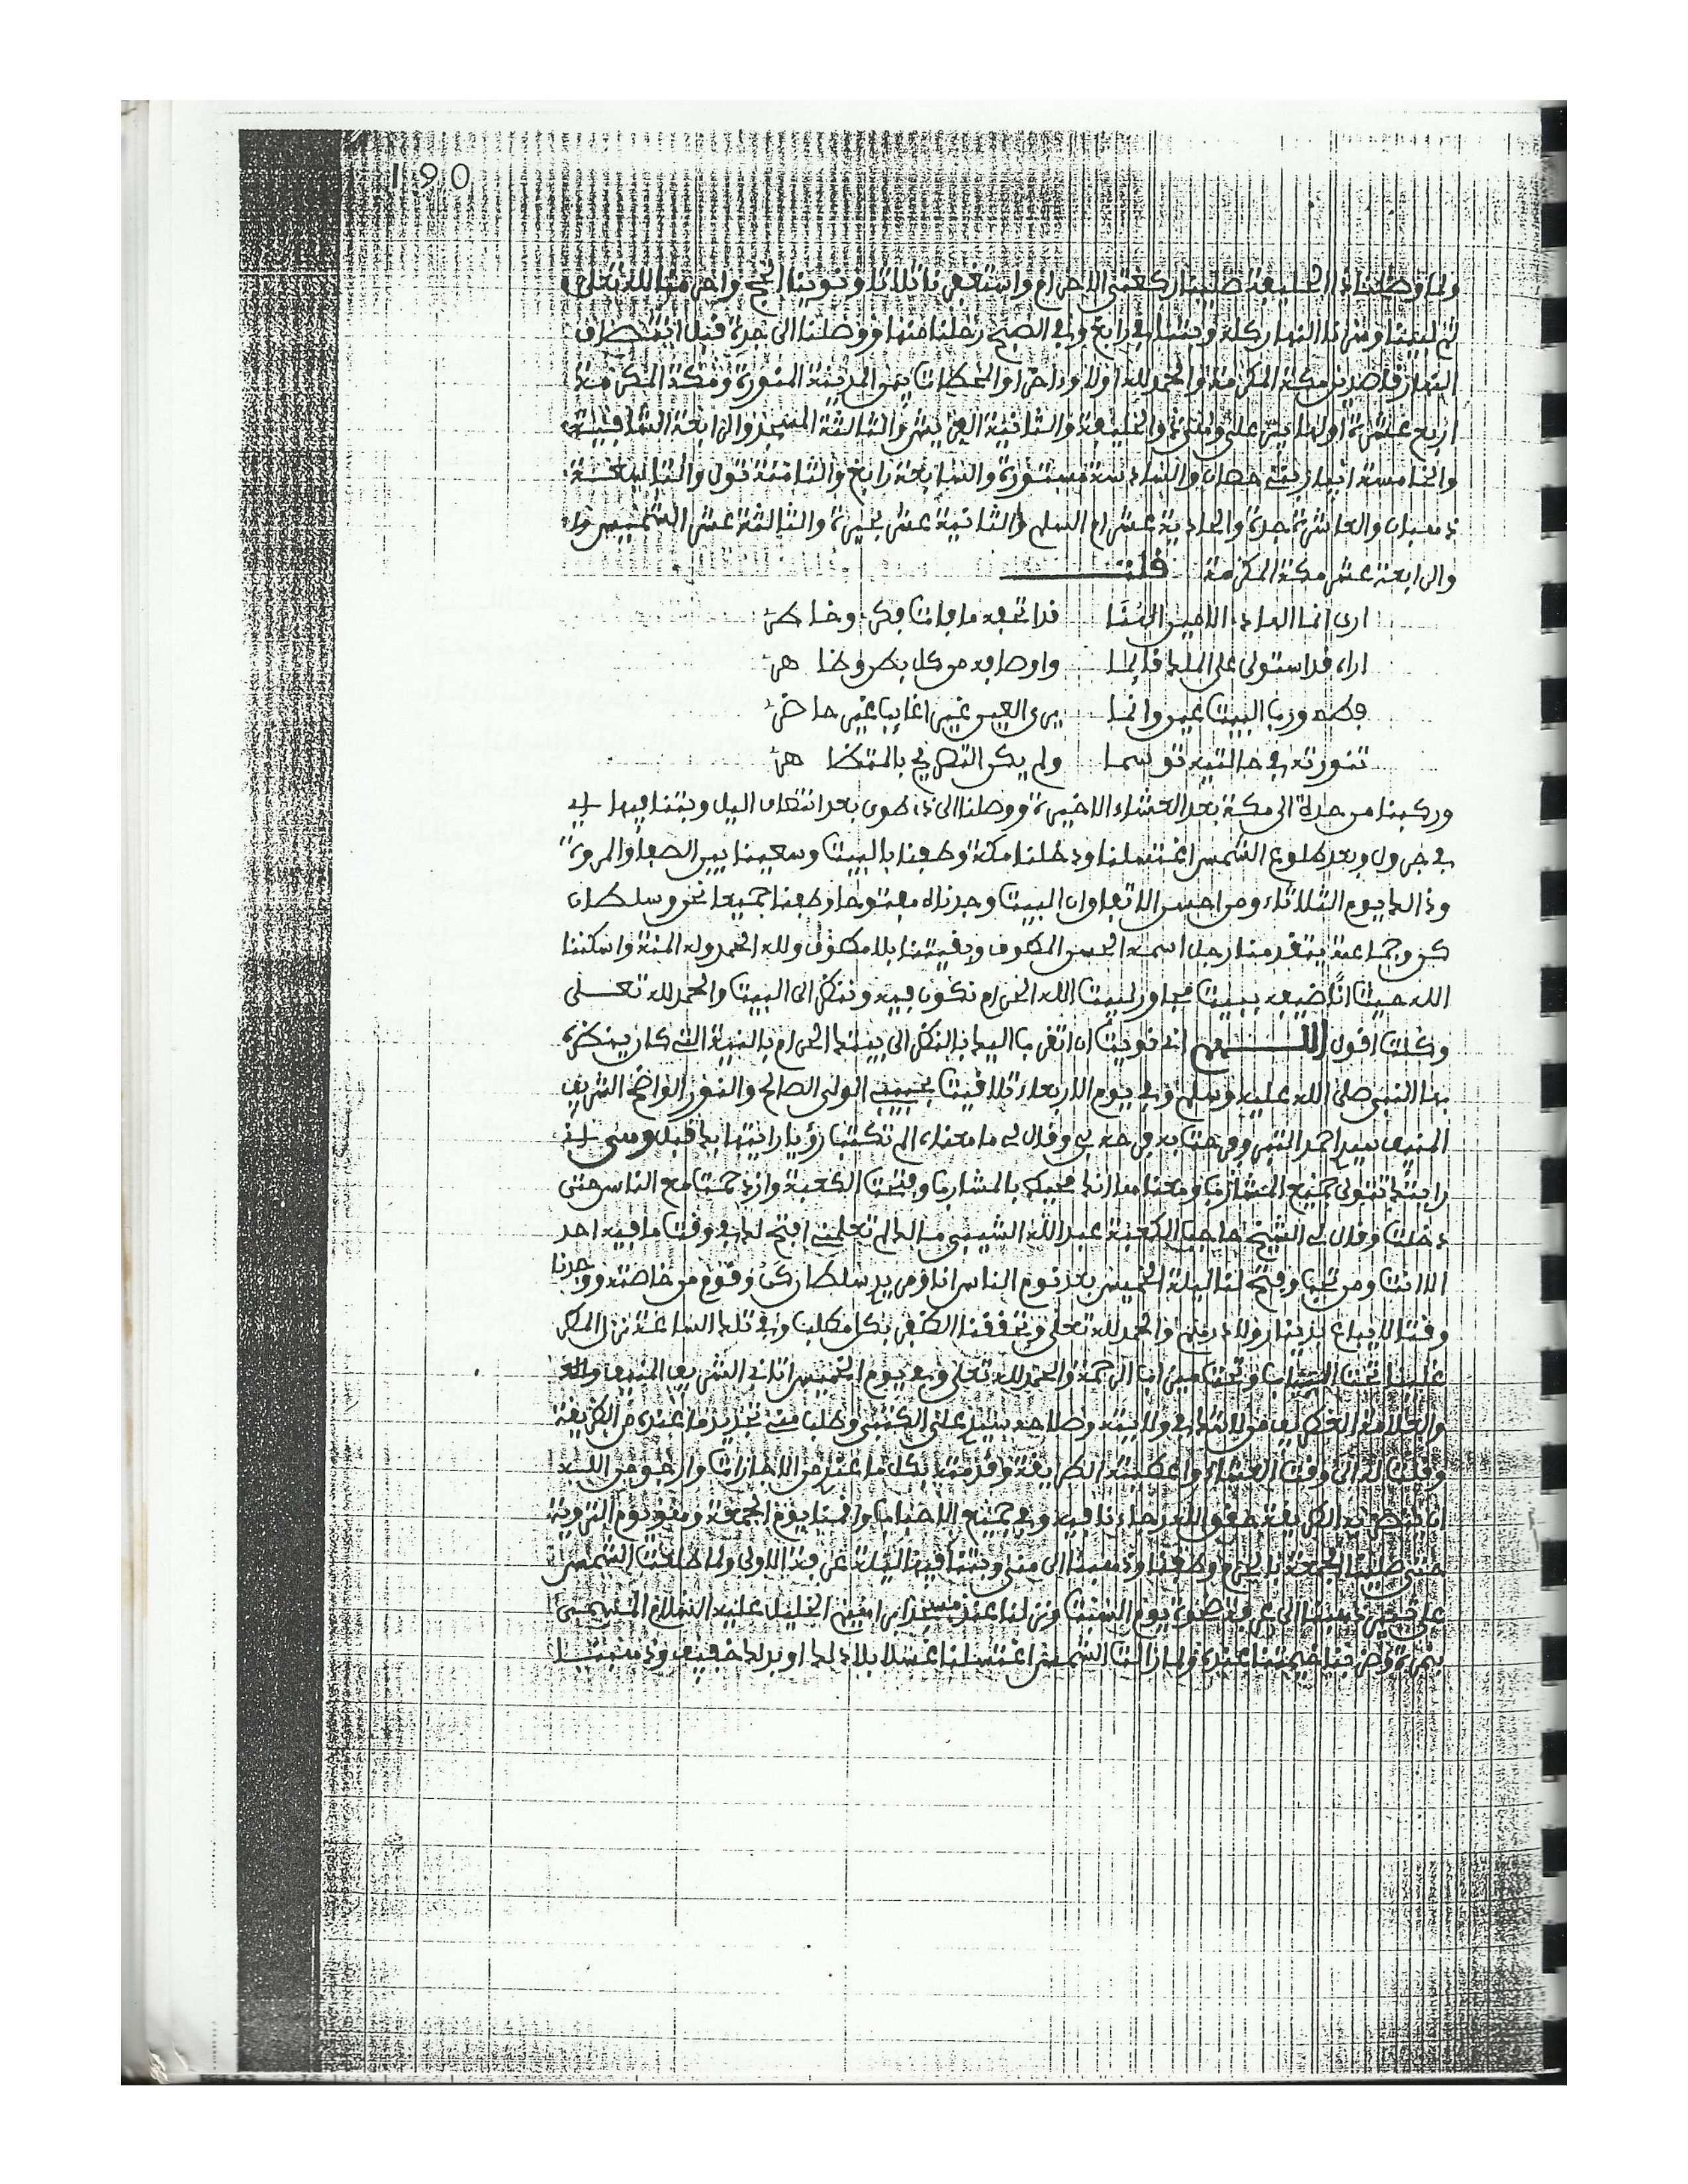 190
ولما وصلنا ذا الحليفة صلينا ركعتي الاحرام واستغفرنا ثلاثا ونوينا الحج واحرمنا لله تعلى
ثم لبينا وسرنا النهار كله وبتنا في رابغ وفي الصبح رحلنا منها ووصلنا الى جدة قبل انتصاف
النهار قاصدين مكة المكرمة والحمد لله اولا وءاخرا والمحطات بين المدينة المنورة ومكة المكرمة
اربع عشرة اولها بير علي وهي ذو الحليفة والثانية الفريش والثالثة المسيجد والرابعة الشافية
والخامسة ابيار بني حصان والسادسة مستورة والسابعة رابغ والثامنة تول والتاسعة
ذهبان والعاشرة جدة والحادية عشر ام السلم والثانية عشر بحيرة والثالثة عشر الشميسي
والرابعة عشر مكة المكرمة قلت
ارى انما الهادي الامين الى هنا قد اتحفه ما فات فكري وخاطر
اراه قد استولى على الملك قائما واوصافه من كل بطن وظاهر
فطه ورب البيت عين وانما يرى العين غيرا غايبا غير حاضر
تنورته في حالتيه توسما ولم يكن التصريح بالمتظاهر
وركبنا من جدة الى مكة بعد العشاء الاخيرة ووصلنا الى ذي طوى بعد انتصاف اليل وبتنا فيها
في جرول وبعد طلوع الشمس اغتسلنا ودخلنا مكة وطفنا بالبيت وسعينا بين الصفا والمروة
وذالك يوم الثلاثاء ومن احسن الاتفاق ان البيت وجدناه مفتوحا وطفنا جميعا نحن وسلطان
كن وجماعة يتقدمنا رجل اسمه الحسن المطوف وبقيتنا بلا مطوف ولله الحمد وله المنة واسكننا
الله حيث انا ضيفه ببيت مجاور لبيت الله الحرام نكون فيه وننظر الى البيت والحمد لله تعلى
وكنت اقول اللهم اني نويت ان اتقرب اليك بالنظر الى بيتك الحرام بالنية التي كان ينظره
بها النبي صلى الله عليه وسلم وفي يوم الاربعاء تلاقيت بحبيبي الولي الصالح والنور الواضح الشريف
المنيف سيد احمد التبر وفرحت به وفرح بي وقال لي ما معناه الم تكتب رؤيا رايتها بك قبل وهي اني
رايتك تتولى جميع المشارب ومعناها انك محيط بالمشارب وفتحت الكعبة وازدحمت مع الناس حتى
دخلت وقال لي الشيخ حاجب الكعبة عبد الله الشيبي مالك لم تعلمني افتح لك في وقت ما فيه احد
الا انت ومن تحب وفتح لنا ليلة الخميس بعد نوم الناس انا ومريد سلطان كن وقوم من خاصته ووجدنا
وقتا لا يباع بدينار ولا درهم والحمد لله تعلى وتحققنا الظفر بكل مطلب وفي تلك الساعة نزل المطر
علينا تحت السحاب وتحت ميزاب الرحمة والحمد لله تعلى وفي يوم الخميس اتاني الشريف المنيف والعلامة
والعلامة الغطريف من لا شك في ولايته وصلاحه سيد علي الكتبي وطلب مني تجديد ما عنده من الطريقة
وقلت له الى وقت العشاء واعطيته الطريقة وقدمته بكل ما عندي من الاجازات وارجو من الله
ان ينصر به الطريقة حقق الله رجاءنا فيه وفي جميع الاحباب واقمنا يوم الجمعة وهو يوم التروية
حتى صلينا الجمعة بالحرم وطفنا وذهبنا الى منى وبتنا فيها ليلة عرفة الاولى ولما طلعت الشمس
على ثبير ذهبنا الى عرفة ضحوة يوم السبت ونزلنا عند مسجد ابراهيم الخليل عليه السلام المسمى
بنمرة وضربنا خيمتنا عنده ولما زالت الشمس اغتسلنا غسلا بلا دلك او بدلك خفيف وذهبنا